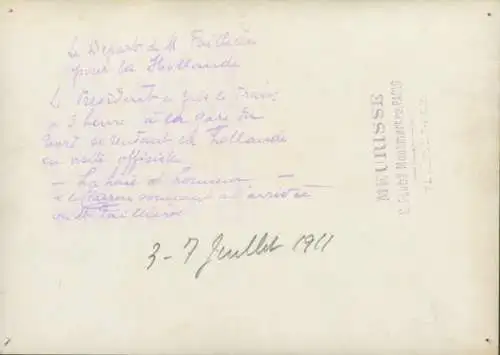 Le Départ de M Fallières
pour la Hollande
Le Président a pris le train
a 3 heure à la gare du
Nord se rendant en Hollande
en visite officielle
— La haie d'honneur —
arrivée
de M Fallières
3-7 Juillet 1911
MEURISSE
Montmartre.PARIS